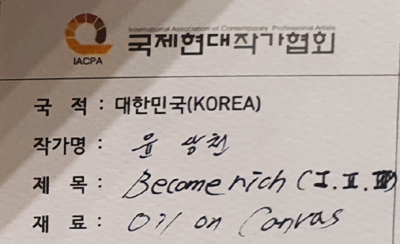 International Association of Contemporary Professional Artists
IACPA
국제현대작가협회
국 적 : 대한민국(KOREA)
작가명 : 윤 상천
제 목 : Become rich (I. II. III)
재 료 : Oil on Canvas